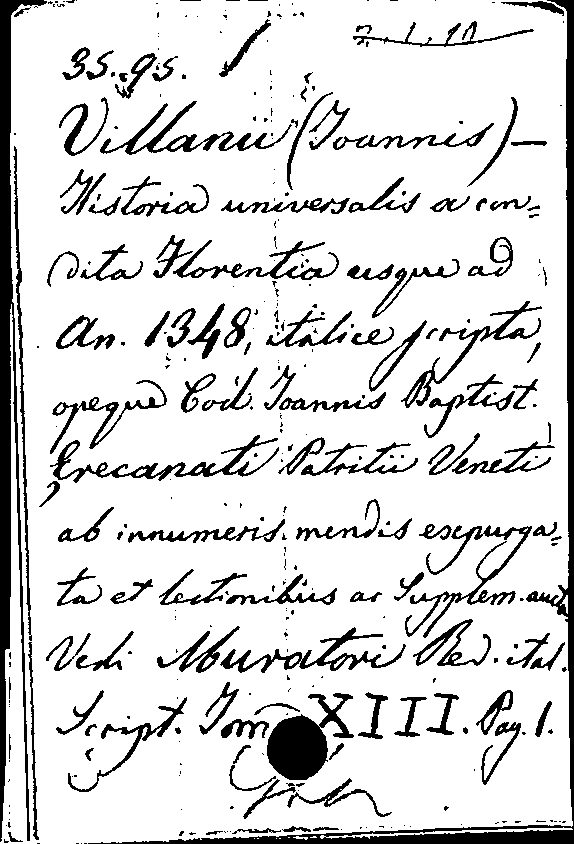 2.1.11
35.95.
Villanii (Joannis) —
Historia universalis a con=
dita Florentia usque ad
An. 1348, italice scripta,
opeque Cod. Joannis Baptist.
Erecanati Patritii Veneti
ab innumeris mendis expurga=
ta et lectionibus ac Supplem. aucta
Vedi Muratori Rer. ital.
Script. Tom XIII. Pag. 1.